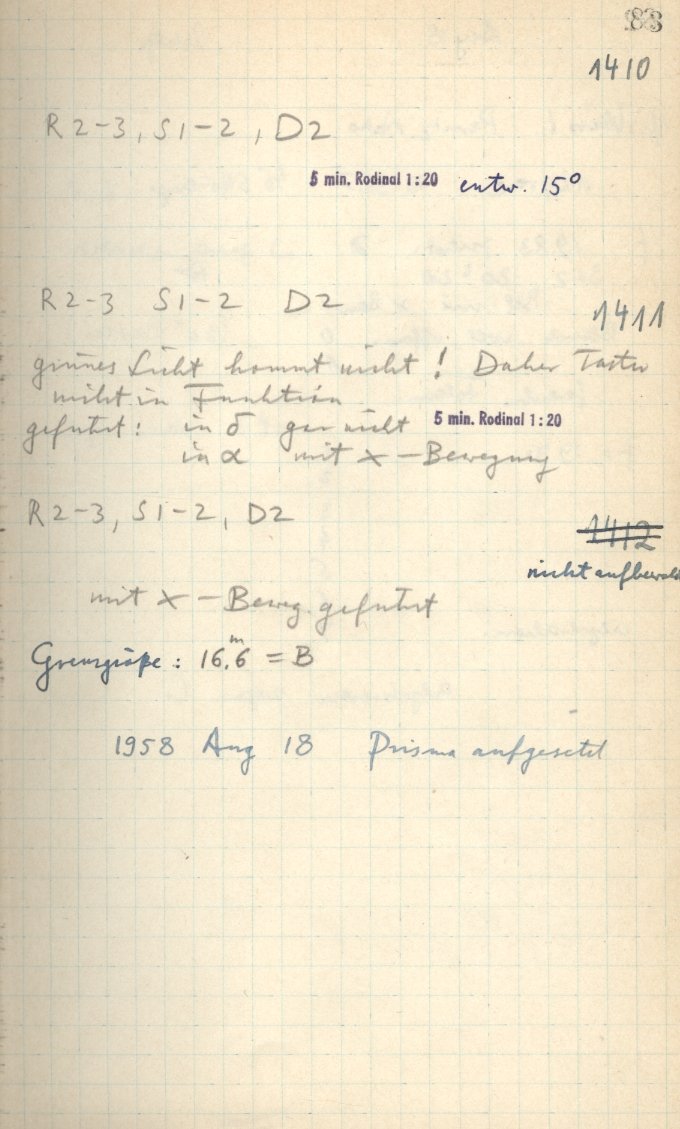 83
1410
R 2-3, S 1-2, D2
5 min. Rodinal 1:20 entw. 15°
R 2-3 S 1-2 D2
1411
grünes Licht kommt nicht! Daher Taster
nicht in Funktion
geführt: in δ gar nicht 5 min. Rodinal 1:20
in α mit x-Bewegung
R 2-3, S 1-2, D2
1412
nicht aufbewahrt
mit x-Beweg. geführt
Grenzgröße: 16,6ᵐ = B
1958 Aug 18 Prisma aufgesetzt